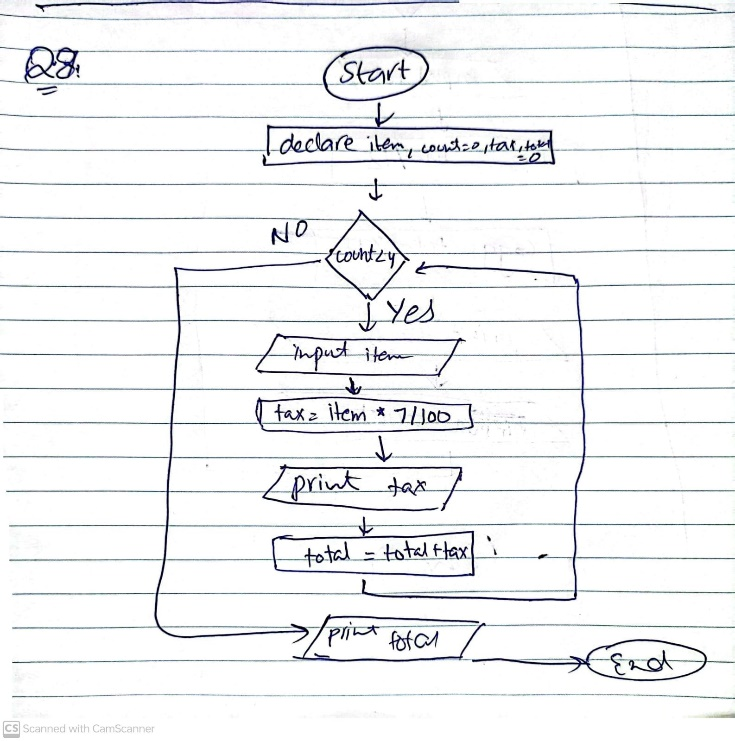 Q8.
Start
declare item, count=0, tax, total
=0
NO
count<4
Yes
input item
tax = item * 7/100
print tax
total = total+tax
print total
End
CS Scanned with CamScanner